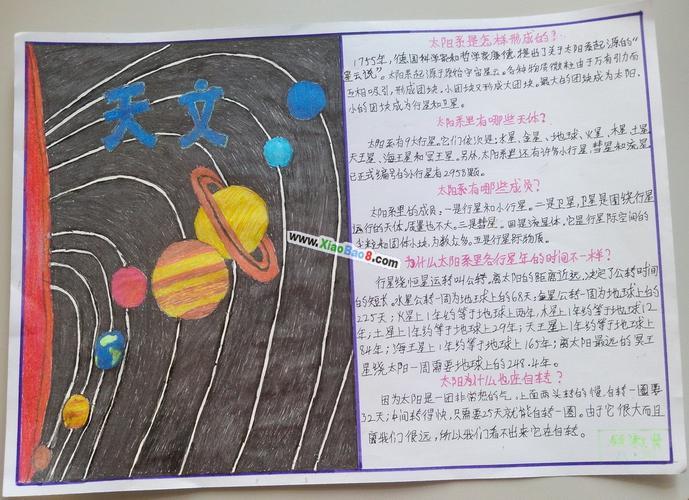 天文
www.XiaoBao8.com
太阳系是怎样形成的?
1755年,德国科学家和哲学家康德,提出了关于太阳系起源的"
星云说"。太阳系起源于原始宇宙星云。各种物质微粒由于万有引力而
互相吸引,形成团块。小团块又形成大团块。最大的团块成为太阳,
小的团块成为行星和卫星。
太阳系里有哪些天体?
太阳系有9大行星。它们依次是:水星、金星、地球、火星、木星、土星、
天王星、海王星和冥王星。另外,太阳系里还有许多小行星,彗星和流星,
已正式编号的小行星有2958颗。
太阳系有哪些成员?
太阳系里的成员:一是行星和小行星。二是卫星,卫星是围绕行星
运行的天体,质量也不大。三是彗星。四是流星体,它是行星际空间的
尘粒和固体小块,为数众多。五是行星际物质。
为什么太阳系里各行星年的时间不一样?
行星绕恒星运转叫公转。离太阳的距离近远,决定了公转时间
的短长。水星公转一周为地球上的68天;金星公转一周为地球上的
225天;火星上1年约等于地球上两年,木星上1年约等于地球12
年;土星上1年约等于地球上29年;天王星上1年约等于地球上
84年;海王星上1年约等于地球上165年;离太阳最远的冥王
星绕太阳一周需要地球上的248.4年。
太阳为什么也在自转?
因为太阳是一团非常热的气,上面两头转的慢,自转一圈要
32天;中间转得快,只需要25天就能自转一圈。由于它很大而且
离我们很远,所以我们看不出来它在自转。